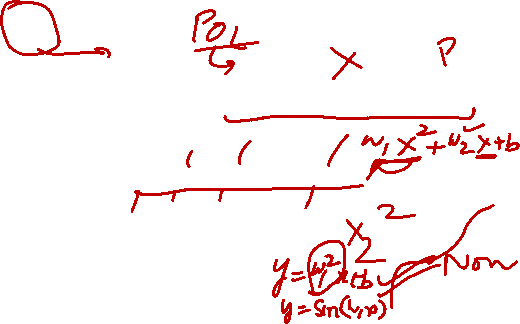 Pol X P
w₁x²+w₂x+b
x²
y=w₁²x+b Non
y=sin(w₁x)